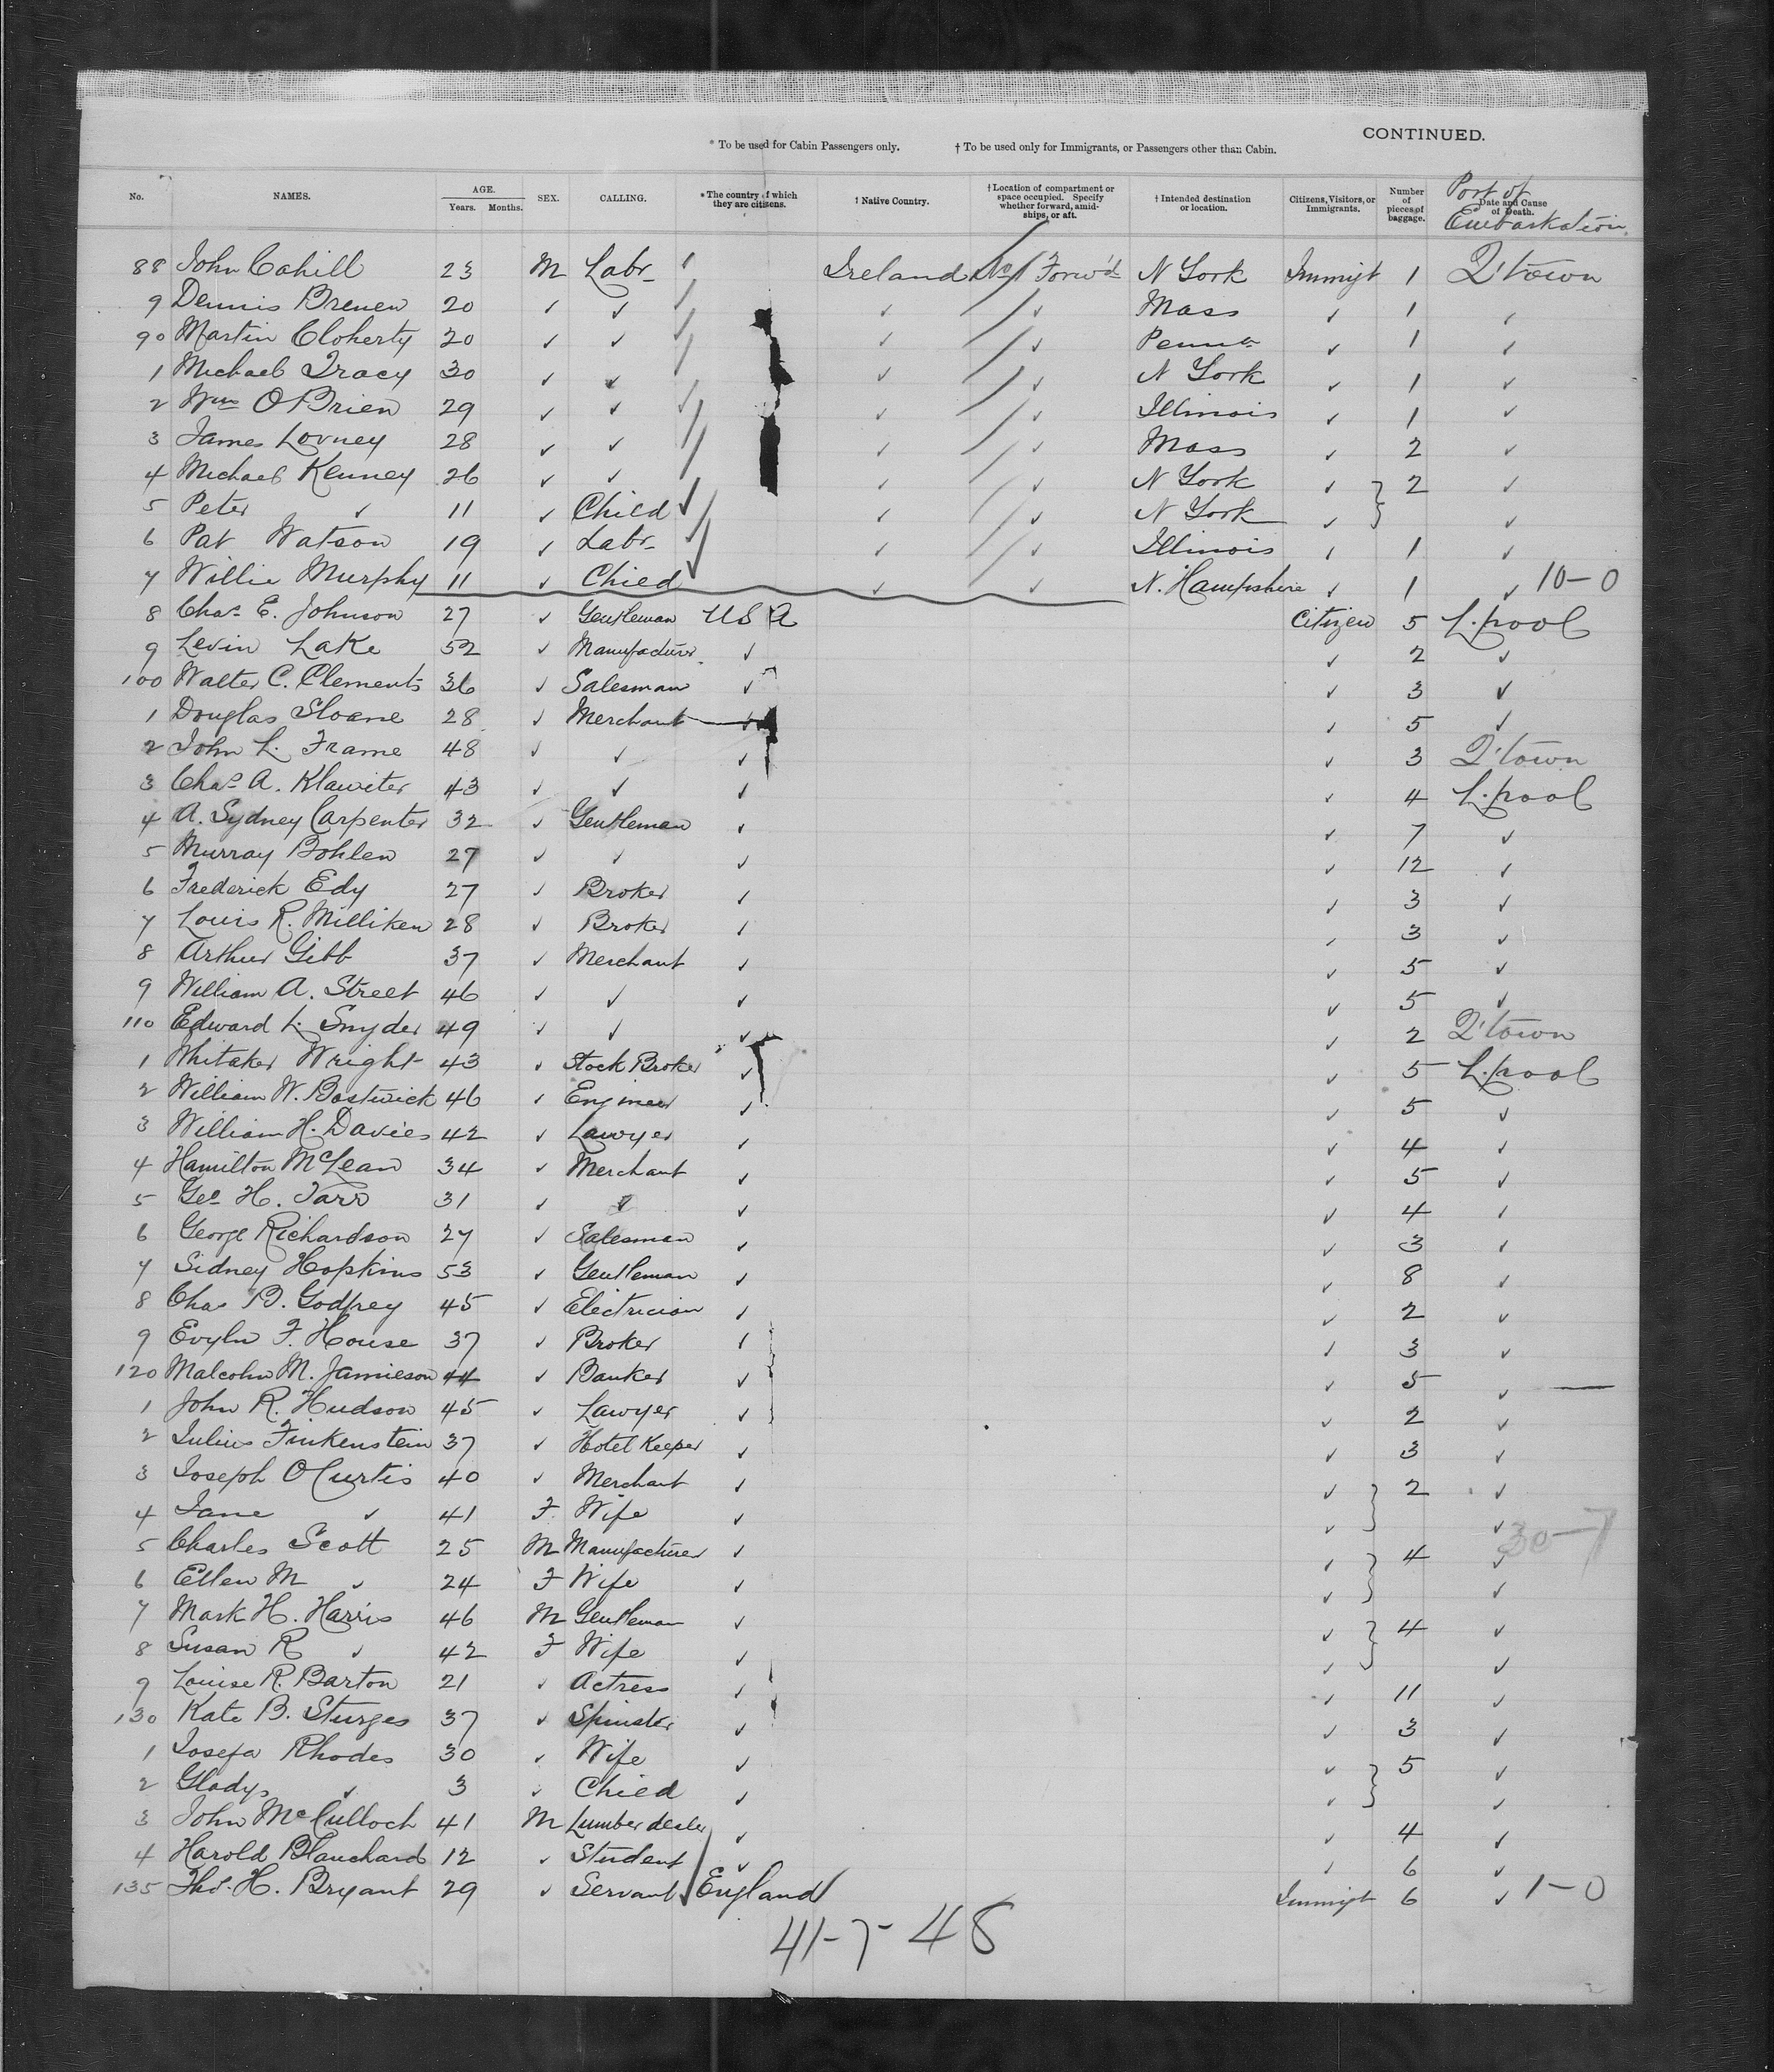 CONTINUED.
* To be used for Cabin Passengers only. † To be used only for Immigrants, or Passengers other than Cabin.
No. NAMES. AGE. Years. Months. SEX. CALLING. * The country of which they are citizens. † Native Country. † Location of compartment or space occupied. Specify whether forward, amidships, or aft. † Intended destination or location. Citizens, Visitors, or Immigrants. Number of pieces of baggage. Date and Cause of Death. Port of Embarkation
88 John Cahill 23 M Labr Ireland No 1 Forw'd N York Immigt 1 Q'town
9 Dennis Brenen 20 ✓ ✓ ✓ ✓ Mass ✓ 1 ✓
90 Martin Cloherty 20 ✓ ✓ ✓ ✓ Penna ✓ 1 ✓
1 Michael Tracy 30 ✓ ✓ ✓ ✓ N York ✓ 1 ✓
2 Wm O'Brien 29 ✓ ✓ ✓ ✓ Illinois ✓ 1 ✓
3 James Lovney 28 ✓ ✓ ✓ ✓ Mass ✓ 2 ✓
4 Michael Kenney 26 ✓ ✓ ✓ ✓ N York ✓ } 2 ✓
5 Peter ✓ 11 ✓ Child ✓ ✓ N York ✓ ✓
6 Pat Watson 19 ✓ Labr ✓ ✓ Illinois ✓ 1 ✓
7 Willie Murphy 11 ✓ Child ✓ ✓ N. Hampshire ✓ 1 ✓ 10-0
8 Chas. E. Johnson 27 ✓ Gentleman USA Citizen 5 L.pool
9 Levin Lake 52 ✓ Manufacturer ✓ ✓ 2 ✓
100 Walter C. Clements 36 ✓ Salesman ✓ ✓ 3 ✓
1 Douglas Sloane 28 ✓ Merchant ✓ ✓ 5 ✓
2 John L. Frame 48 ✓ ✓ ✓ ✓ 3 Q'town
3 Chas. A. Klawiter 43 ✓ ✓ ✓ ✓ 4 L.pool
4 A. Sydney Carpenter 32 ✓ Gentleman ✓ ✓ 7 ✓
5 Murray Bohlen 27 ✓ ✓ ✓ ✓ 12 ✓
6 Frederick Edy 27 ✓ Broker ✓ ✓ 3 ✓
7 Louis R. Milliken 28 ✓ Broker ✓ ✓ 3 ✓
8 Arthur Gibb 37 ✓ Merchant ✓ ✓ 5 ✓
9 William A. Street 46 ✓ ✓ ✓ ✓ 5 ✓
110 Edward L. Snyder 49 ✓ ✓ ✓ ✓ 2 Q'town
1 Whitaker Wright 43 ✓ Stock Broker ✓ ✓ 5 L.pool
2 William W. Bostwick 46 ✓ Engineer ✓ ✓ 5 ✓
3 William H. Davies 42 ✓ Lawyer ✓ ✓ 4 ✓
4 Hamilton McLean 34 ✓ Merchant ✓ ✓ 5 ✓
5 Geo. H. Tarr 31 ✓ ✓ ✓ ✓ 4 ✓
6 George Richardson 27 ✓ Salesman ✓ ✓ 3 ✓
7 Sidney Hopkins 53 ✓ Gentleman ✓ ✓ 8 ✓
8 Chas B. Godfrey 45 ✓ Electrician ✓ ✓ 2 ✓
9 Evyln F. House 37 ✓ Broker ✓ ✓ 3 ✓
120 Malcolm M. Jamieson 44 ✓ Banker ✓ ✓ 5 ✓ —
1 John R. Hudson 45 ✓ Lawyer ✓ ✓ 2 ✓
2 Julius Finkenstein 37 ✓ Hotel Keeper ✓ ✓ 3 ✓
3 Joseph O Curtis 40 ✓ Merchant ✓ ✓ } 2 ✓
4 Jane ✓ 41 F. Wife ✓ ✓ ✓
5 Charles Scott 25 M Manufacturer ✓ ✓ } 4 ✓ 30-7
6 Ellen M ✓ 24 F Wife ✓ ✓ ✓
7 Mark H. Harris 46 M Gentleman ✓ ✓ } 4 ✓
8 Susan R ✓ 42 F Wife ✓ ✓ ✓
9 Louise R. Barton 21 ✓ Actress ✓ ✓ 11 ✓
130 Kate B. Sturges 37 ✓ Spinster ✓ ✓ 3 ✓
1 Josefa Rhodes 30 ✓ Wife ✓ ✓ } 5 ✓
2 Gladys ✓ 3 ✓ Child ✓ ✓ ✓
3 John McCulloch 41 M Lumber dealer ✓ ✓ 4 ✓
4 Harold Blanchard 12 ✓ Student ✓ ✓ 6 ✓
135 Thos. H. Bryant 29 ✓ Servant England Immigt 6 ✓ 1-0
41-7-48